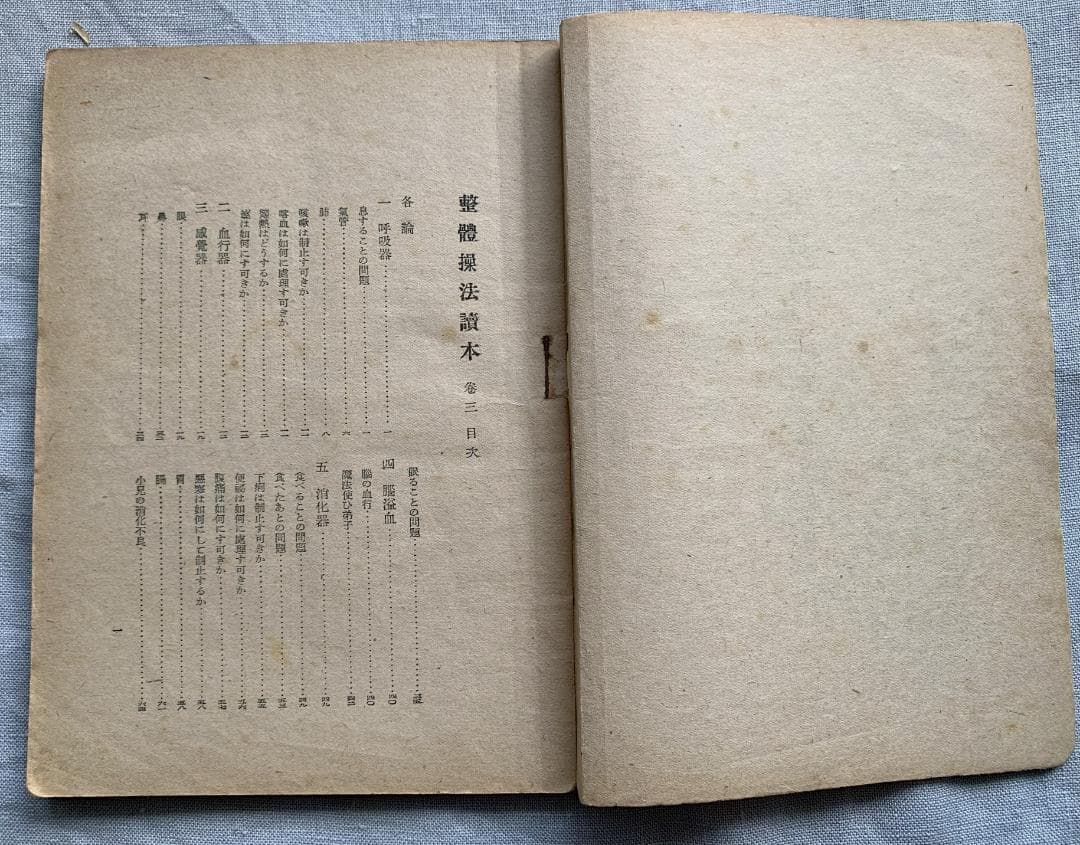 整體操法讀本 卷三 目次
各論
一 呼吸器……一
息することの問題……一
氣管……六
肺……八
咳嗽は制止す可きか……一一
喀血は如何に處理す可きか……一一
發熱はどうするか……一二
は如何にす可きか……一三
二 血行器……一三
三 感覺器……一九
眼……一九
鼻……三一
耳……三四
眠ることの問題……三五
四 腦溢血……四〇
腦の血行……四〇
魔法使ひ弟子……四三
五 消化器……四九
食べることの問題……四九
食べたあとの問題……五三
下痢は制止す可きか……五五
便祕は如何に處理す可きか……五六
腹痛は如何にす可きか……五七
惡寒は如何にして制止するか……五八
胃……五八
腸……六一
小兒の消化不良……六四
一